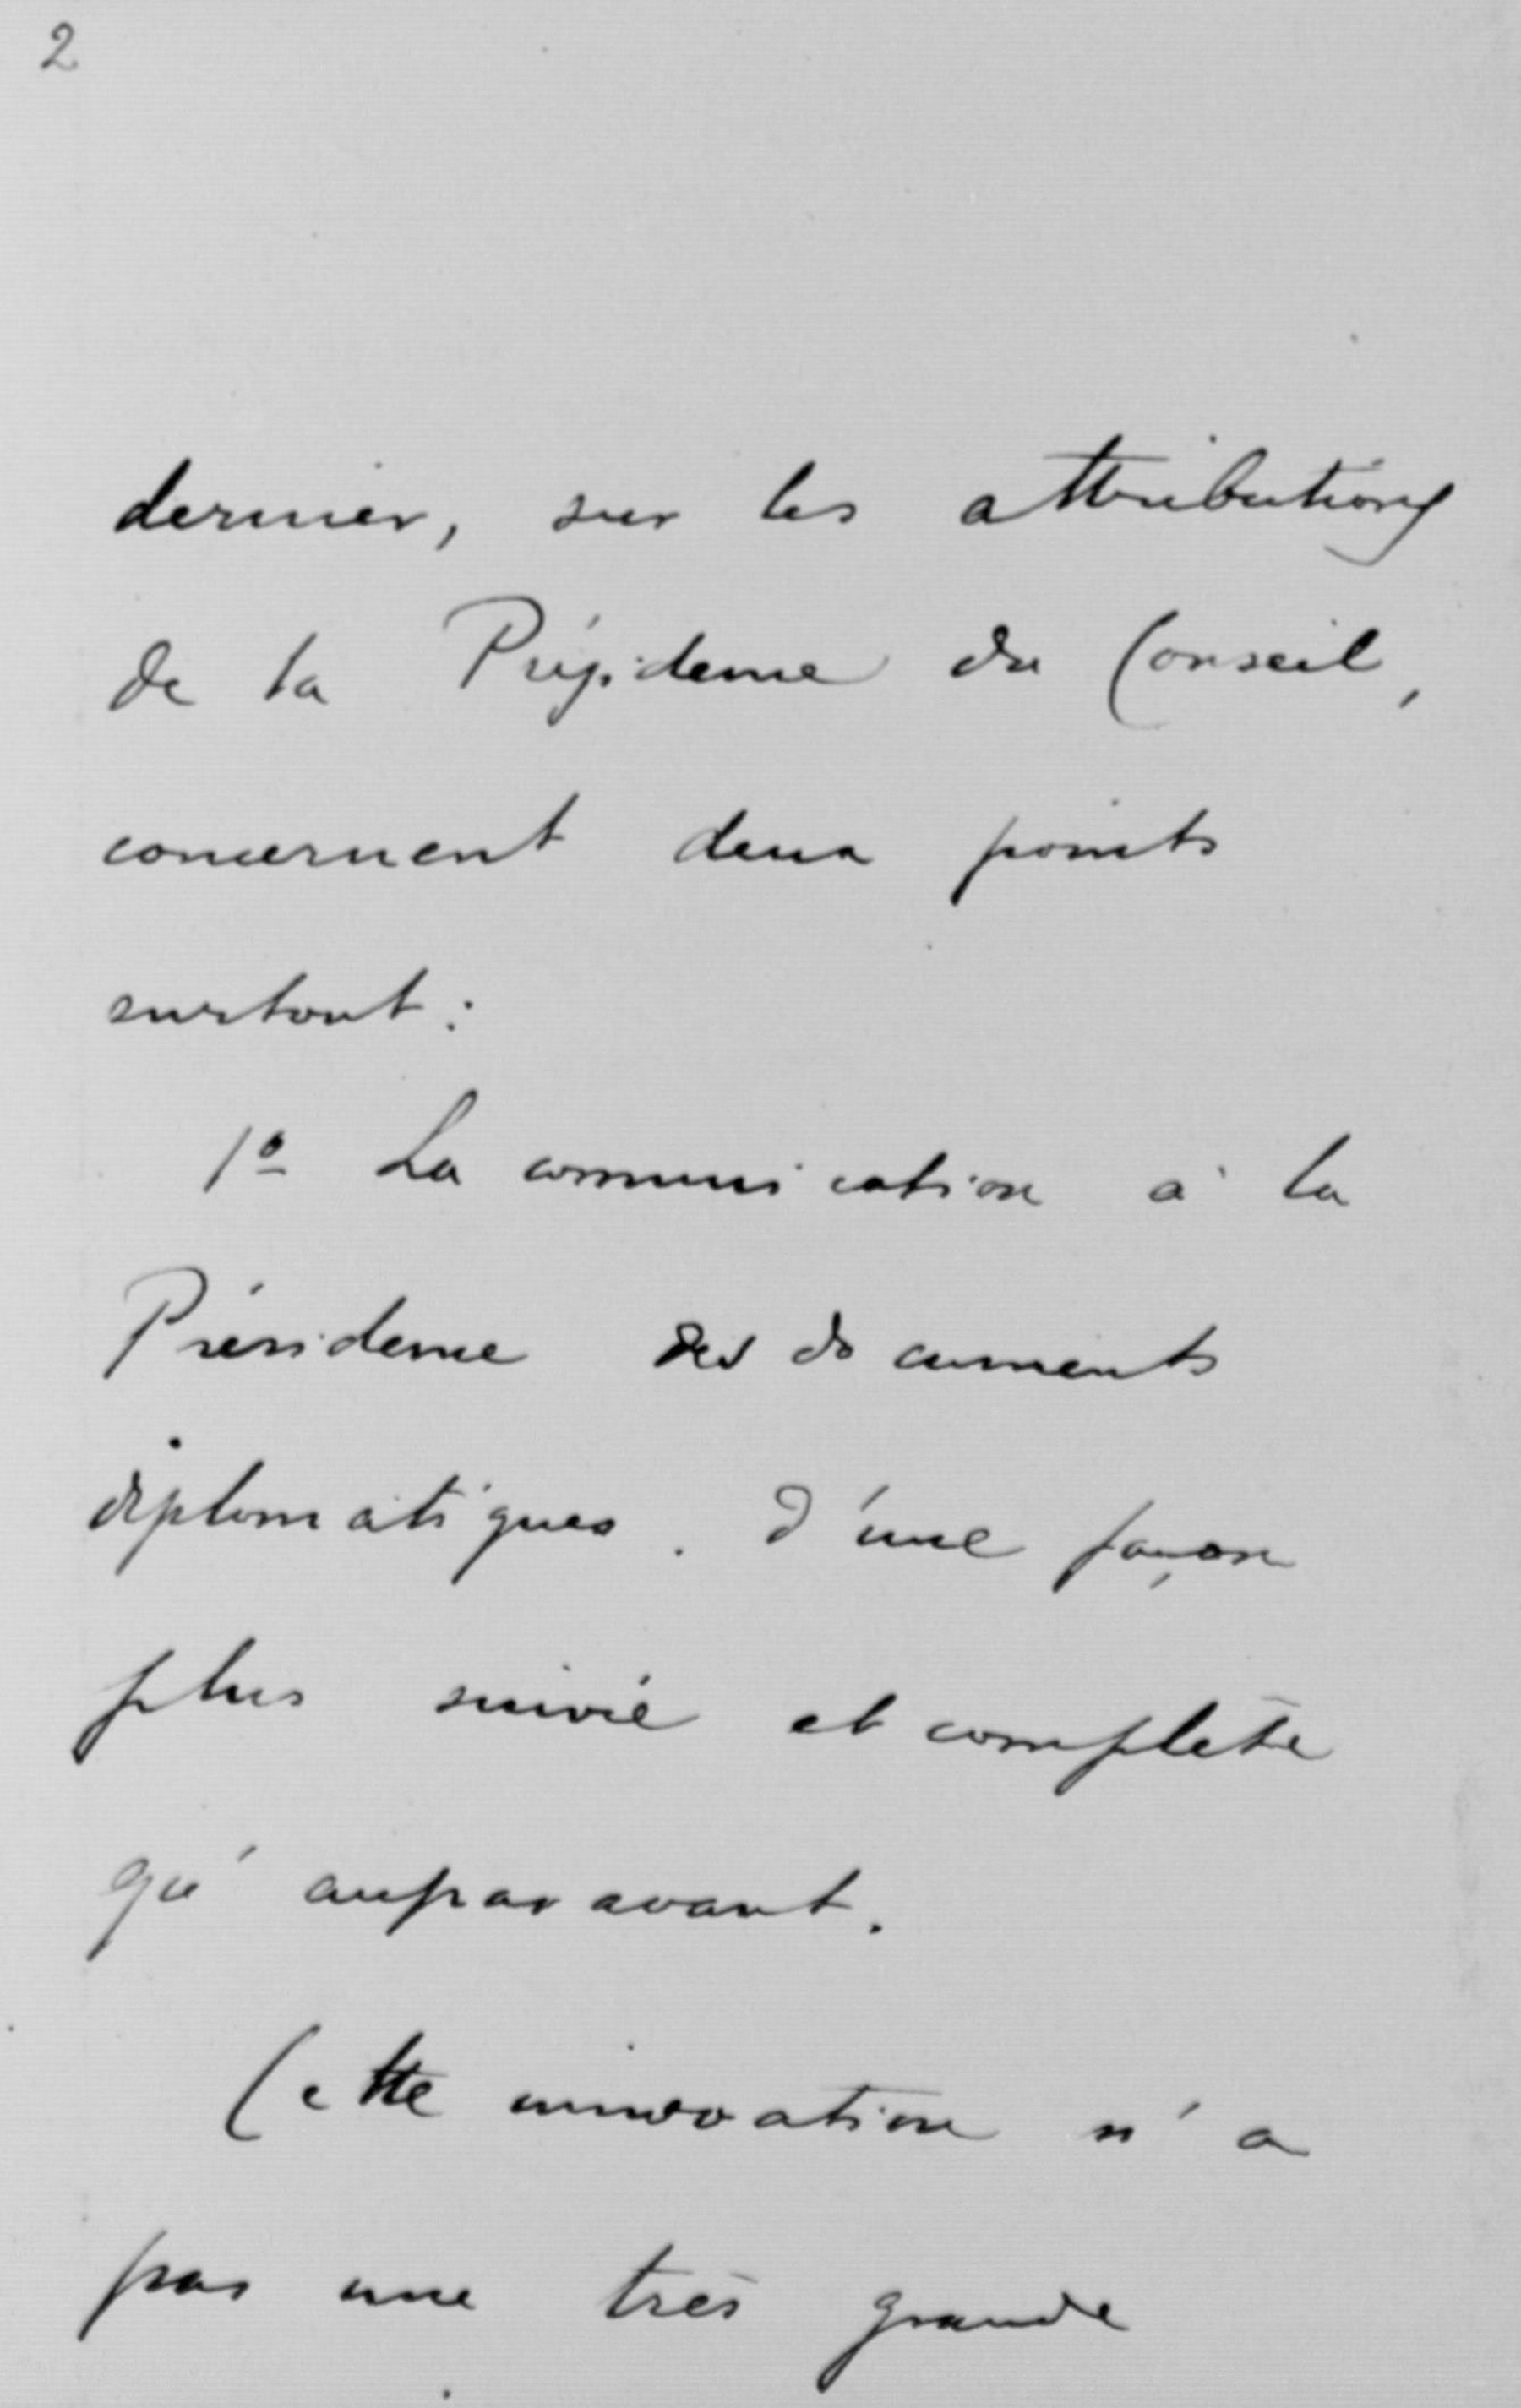 2
dernier, sur les attributions
de la Présidence du Conseil,
concernent deux points
surtout :
1º La communication à la
Présidence des documents
diplomatiques. d'une façon
plus suivie et complète
qu'auparavant.
Cette innovation n'a
pas une très grande